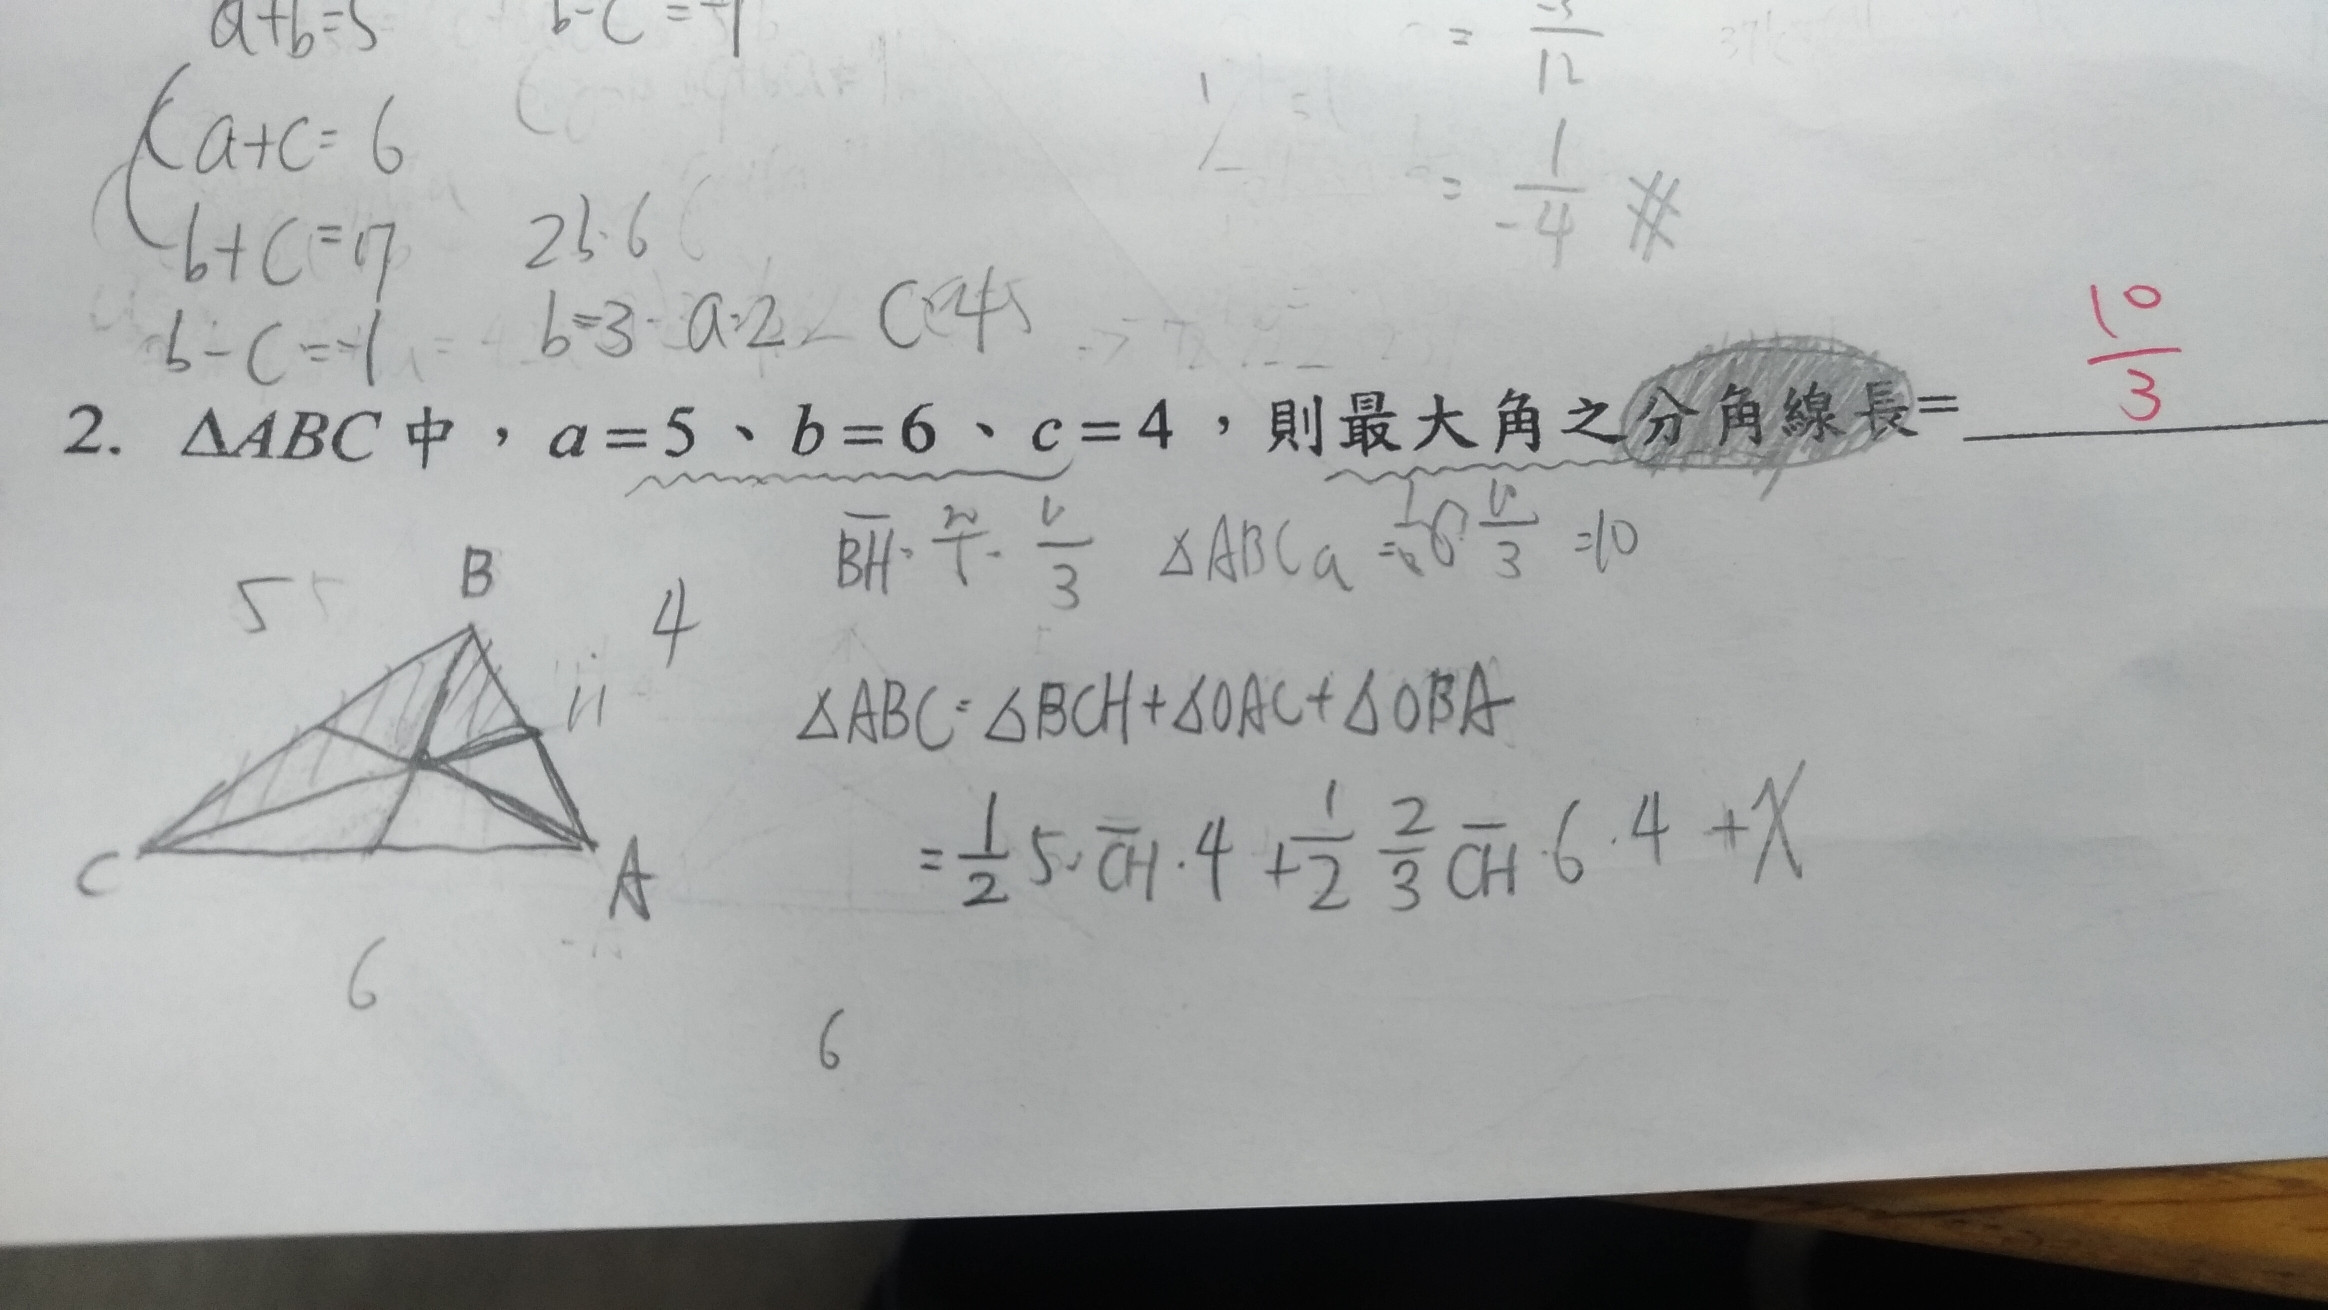 a+b=5 b-c=-1
a+c=6
b+c=7 2b=6
b-c=-1 b=3 a=2 c=4
= -3/12
= 1/-4 #
2. △ABC 中，a=5、b=6、c=4，則最大角之分角線長= 10/3
△ABC =10
B
5 4
H
C A
6
△ABC=△BCH+△OAC+△OBA
=1/2 5·CH·4+1/2 2/3 CH·6·4+X
6